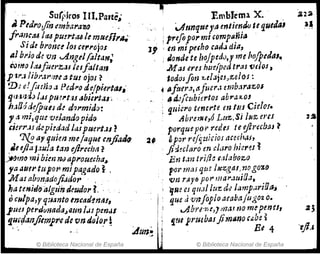 Suspiros III. Parte,
à Pedro, sin embarazo
francas las puertas le muestra;
Si de bronce los cerrojos 19
al brio de vn Angel saltan,
como las fuerzas le faltan
para librarme a tus ojos?
Dı̃ es sueño a Pedro despiertas,
hallò despues de dormido:
y a mi, que velando pido
cierras de piedad las puertas?
No ay quien me saque en fiado 20
como mi bien no aprouecha,
ya auer tu por mi pagado?
Mas abonado fiador
ha tenido algun deudor?
ò culpa, y quanto encadenas,
pues perdonada, aun las penas
quedan siempre de vn dolor!
Aun-
Emblema X. 222
Aunque ya entiendo te quedas 21
preso por mi compañia
en mi pecho cada dia,
donde te hospedo, y me hospedas,
Mas eres huesped tras velos,
todos son zelajes, zelos:
afuera, afuera embarazos
a descubiertos abrazos
quiero tenerte en tus Cielos.
Abreme, ò Luz. Si luz eres 22
porque por redes te estrechas?
En tan triste calabozo
por mas que luzgas, no gozo
vn rayo por marauilla,
que es qual luz de lamparilla,
que à vn soplo acaba su gozo.
Abreme, y mas no me penes, 23
que pruebas si mano cabe
Ee 4
© Biblioteca Nacional de España
© Biblioteca Nacional de España